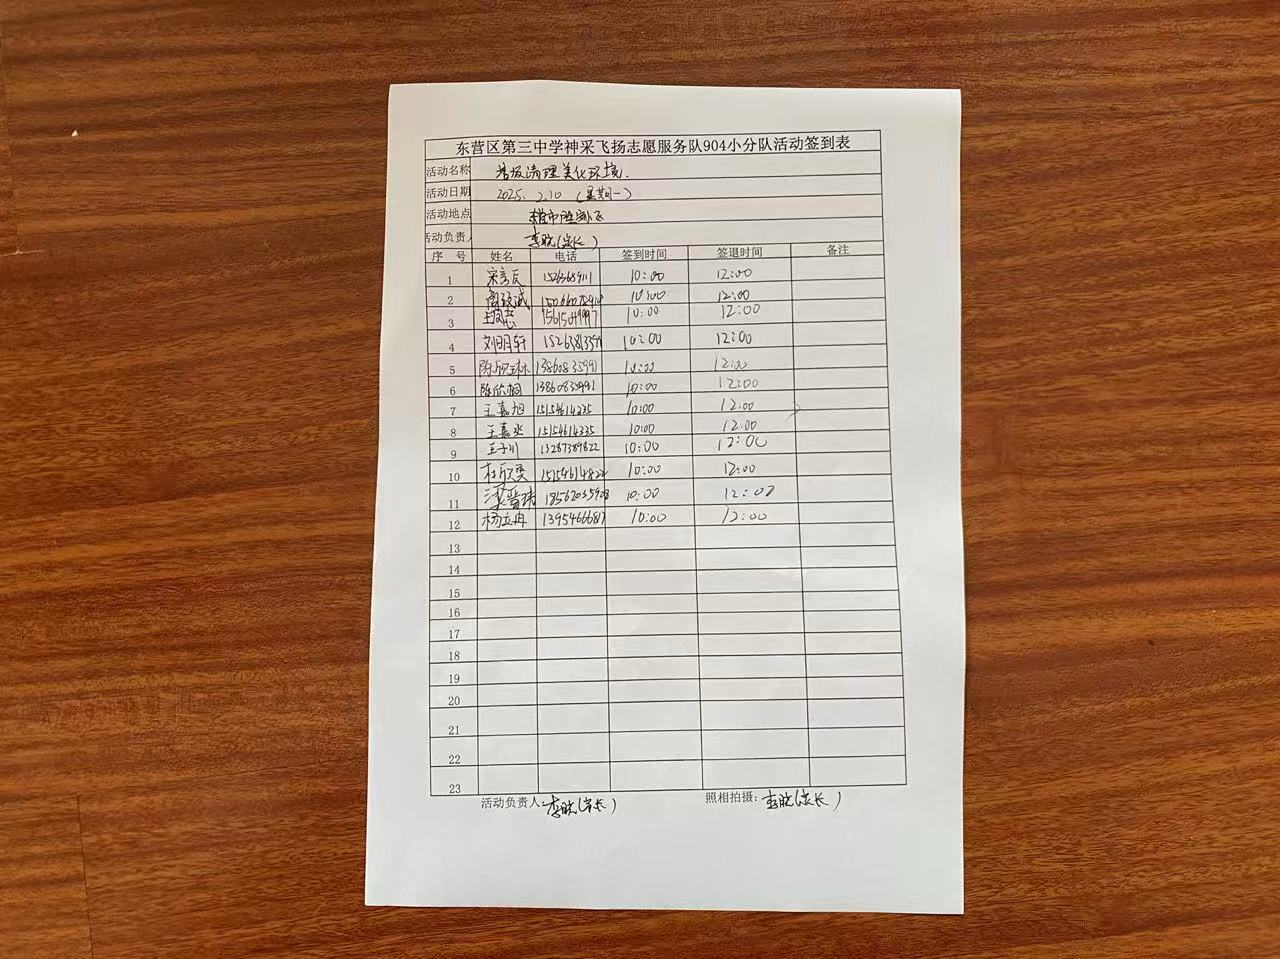 东营区第三中学神采飞扬志愿服务队904小分队活动签到表
活动名称 清理美化环境.
活动日期 2025. 2.10 (星期一)
活动地点
活动负责人 李晓(家长)
序 号 姓名 电话 签到时间 签退时间 备注
1 15263659111 10:00 12:00
2 10:00 12:00
3 10:00 12:00
4 刘明轩 10:00 12:00
5 13860835991 10:00 12:00
6 陈欣桐 13860835991 10:00 12:00
7 王嘉旭 15154614335 10:00 12:00
8 王嘉丞 15154614335 10:00 12:00
9 王子川 13287389822 10:00 12:00
10 杜欣奕 10:00 12:00
11 18562035908 10:00 12:00
12 杨立冉 10:00 12:00
13
14
15
16
17
18
19
20
21
22
23
活动负责人 李晓(家长) 照相拍摄: 李晓(家长)